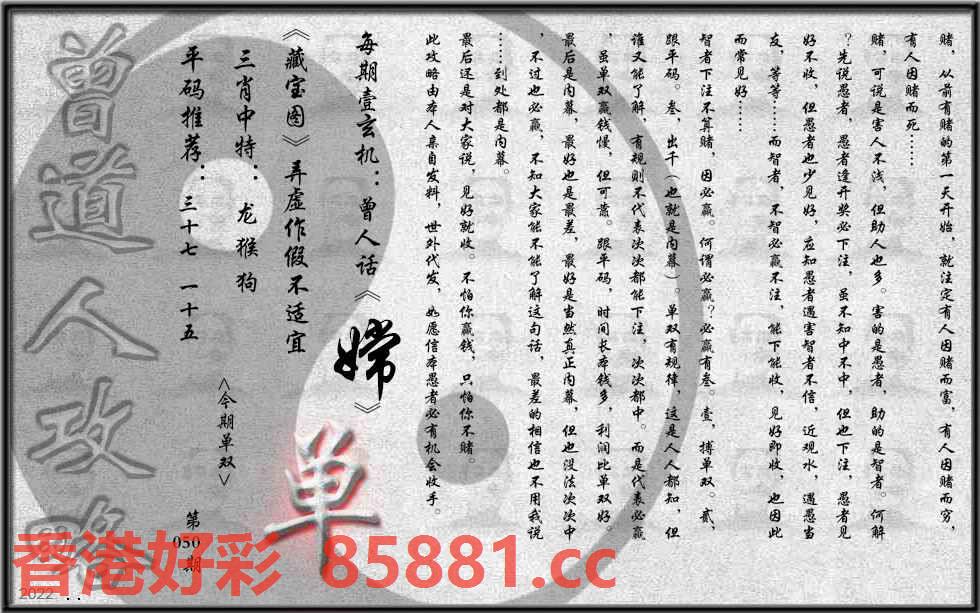 赌，从前有赌的第一天开始，就注定有人因赌而富，有人因赌而穷，
有人因赌而死……
赌，可说是害人不浅，但助人也多。害的是愚者，助的是智者。何解
？先说愚者，愚者逢开奖必下注，虽不知中不中，但也下注，愚者见
好不收，但愚者也少见好，应知愚者遇害智者不信，近观水，遇愚当
友，等等……而智者，不智必赢不注，能下能收，见好即收，也因此
而常见好……
智者下注不算赌，因必赢。何谓必赢？必赢有叁。壹，搏单双。贰，
跟平码。叁，出千（也就是内幕）。单双有规律，这是人人都知，但
谁又能了解，有规则不代表次次都能下注，次次都中。而是代表必赢
，虽单双赢钱慢，但可靠。跟平码，时间长本钱多，利润比单双好。
最后是内幕，最好也是最差，最好是当然真正内幕，但也没法次次中
，不过也必赢，不知大家能不能了解这句话，最差的相信也不用我说
……到处都是内幕。
最后还是对大家说，见好就收。不怕你赢钱，只怕你不赌。
此攻略由本人亲自发料，世外代发，如愿信本愚者必有机会收手。
每期壹玄机：曾人话《嫦》
《藏宝图》弄虚作假不适宜
三肖中特：龙猴狗
平码推荐：三十七 一十五
<今期单双>
单
第
050
期
曾道人攻略
香港好彩 85881.cc
2022